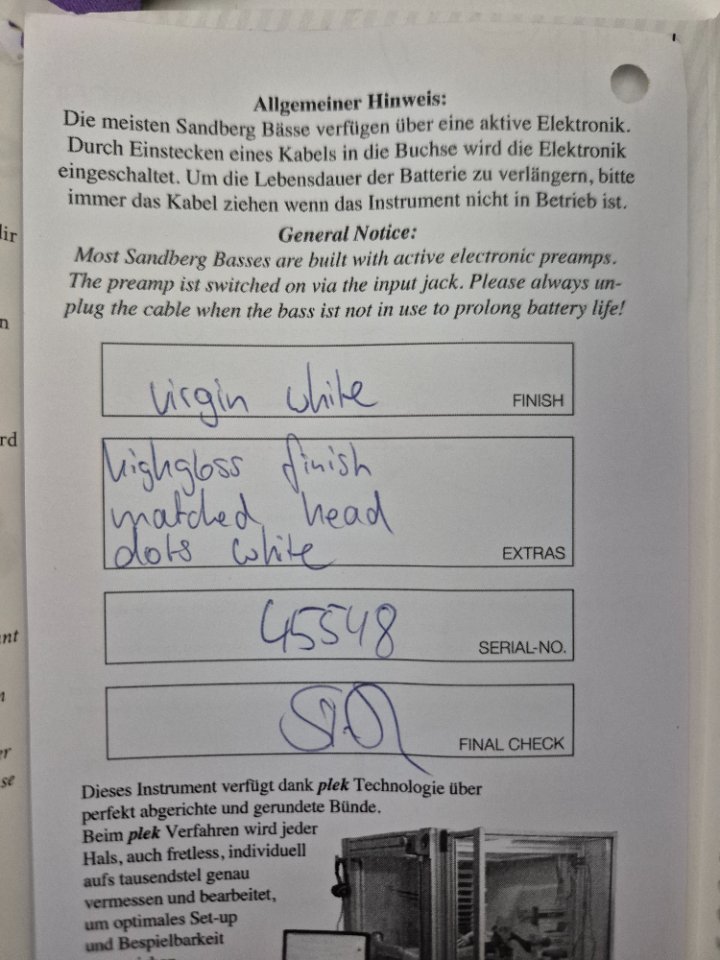 Allgemeiner Hinweis:
Die meisten Sandberg Bässe verfügen über eine aktive Elektronik.
Durch Einstecken eines Kabels in die Buchse wird die Elektronik
eingeschaltet. Um die Lebensdauer der Batterie zu verlängern, bitte
immer das Kabel ziehen wenn das Instrument nicht in Betrieb ist.
General Notice:
Most Sandberg Basses are built with active electronic preamps.
The preamp ist switched on via the input jack. Please always un-
plug the cable when the bass ist not in use to prolong battery life!
virgin white
FINISH
highgloss finish
matched head
dots white
EXTRAS
45548
SERIAL-NO.
FINAL CHECK
Dieses Instrument verfügt dank plek Technologie über
perfekt abgerichte und gerundete Bünde.
Beim plek Verfahren wird jeder
Hals, auch fretless, individuell
aufs tausendstel genau
vermessen und bearbeitet,
um optimales Set-up
und Bespielbarkeit